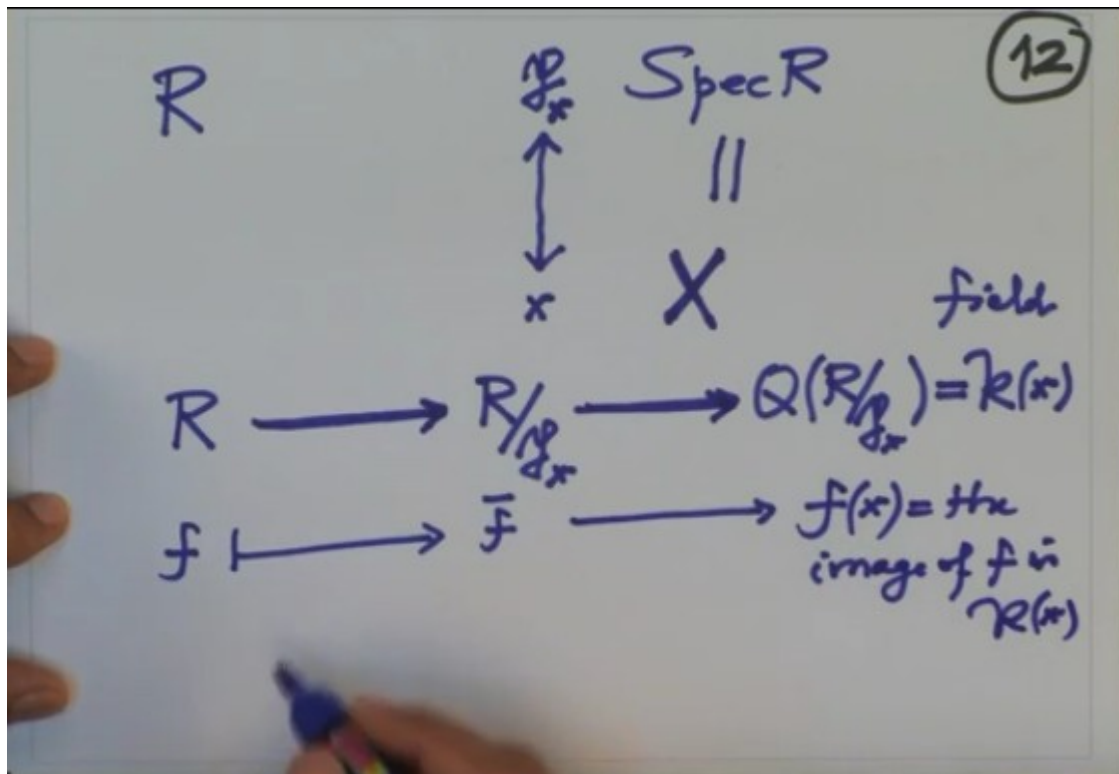 12
R 𝔭ₓ Spec R
↕ ||
x X
field
R ⟶ R/𝔭ₓ ⟶ Q(R/𝔭ₓ) = k(x)
f ⟼ f̄ ⟶ f(x) = the
image of f in
k(x)